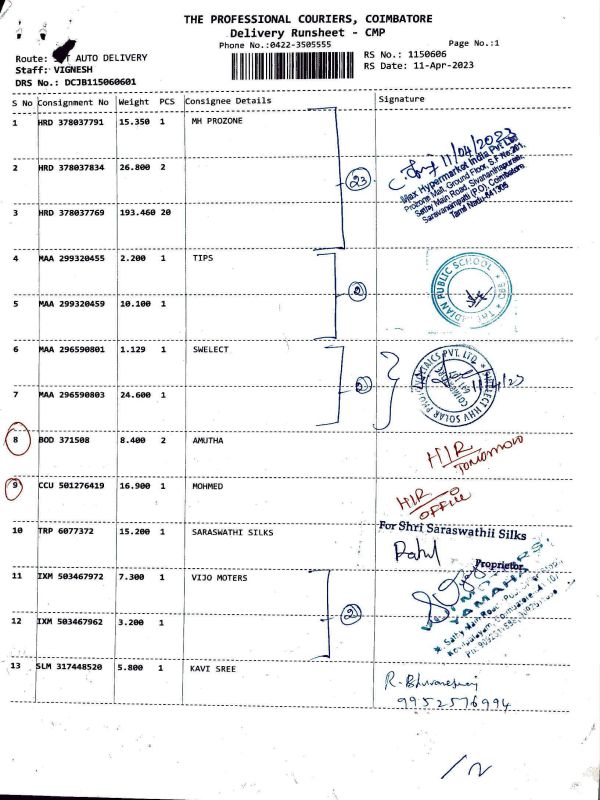 THE PROFESSIONAL COURIERS, COIMBATORE
Delivery Runsheet - CMP
Phone No.:0422-3505555
Page No.:1
Route: AUTO DELIVERY
RS No.: 1150606
Staff: VIGNESH
RS Date: 11-Apr-2023
DRS No.: DCJB115060601
S No Consignment No Weight PCS Consignee Details Signature
1 HRD 378037791 15.350 1 MH PROZONE
11/04/2023
Max Hypermarket India Pvt Ltd
Prozone Mall, Ground Floor, S.F No.201,
Sathy Main Road, Sivananthapuram,
Saravanampatti (P.O), Coimbatore,
Tamil Nadu-641305
2 HRD 378037834 26.800 2
23
3 HRD 378037769 193.460 20
4 MAA 299320455 2.200 1 TIPS
PUBLIC SCHOOL
CBE
2
5 MAA 299320459 10.100 1
6 MAA 296590801 1.129 1 SWELECT
PVT. LTD.
HHV SOLAR
11/4/23
2
7 MAA 296590803 24.600 1
8 BOD 371508 8.400 2 AMUTHA
HIR
Tomorrow
9 CCU 501276419 16.900 1 MOHMED
HIR
OFFICE
10 TRP 6077372 15.200 1 SARASWATHI SILKS
For Shri Saraswathii Silks
Proprietor
11 IXM 503467972 7.300 1 VIJO MOTERS
MOTORS
YAMAHA
2
12 IXM 503467962 3.200 1
13 SLM 317448520 5.800 1 KAVI SREE
R. Bhuvaneswari
9952576994